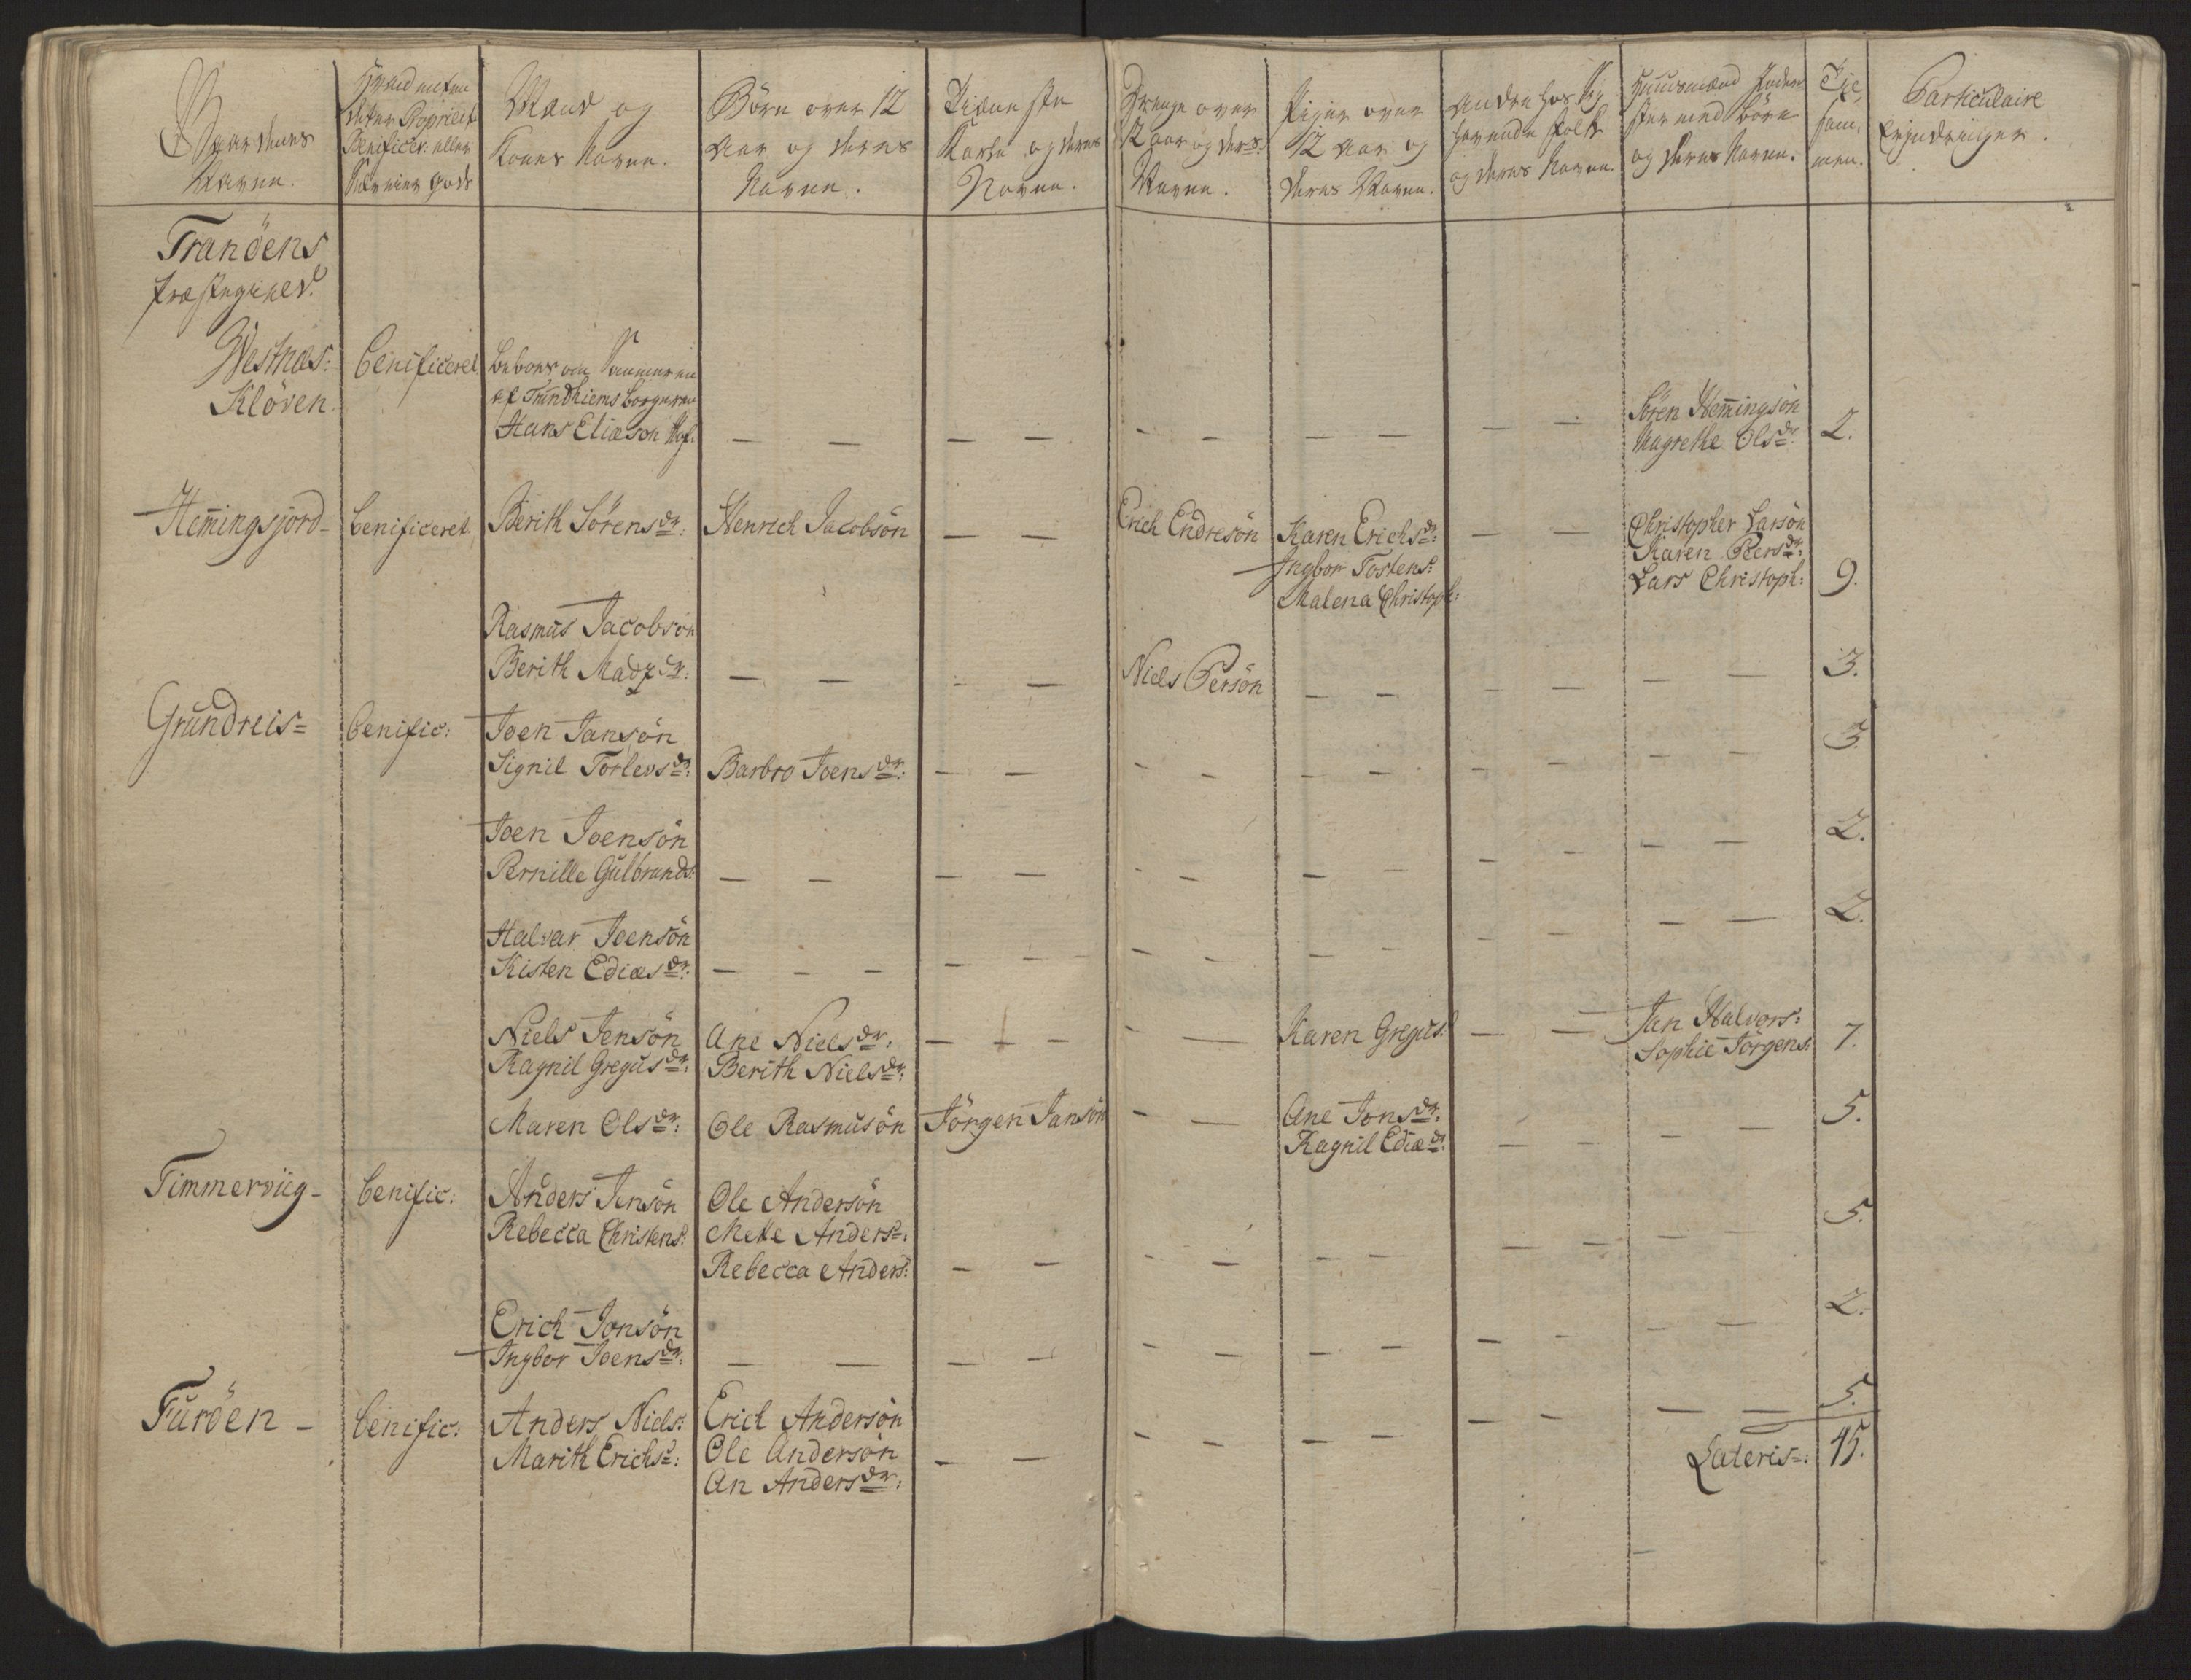 Gaardenes
Navne.
Mænd og
Koners Navne.
Börn over 12
Aar og deres
Navne.
Tieneste
Karle og deres
Navne.
Drenge over
12 aar og deres
Navne.
Piger over
12 Aar og
deres Navne.
og deres Navne.
og deres Navne.
Tilsammen.
Particulaire
Erindringer.
Tranöens
Præstegield.
Westnes:
Klöven
benificeret
af Trundhiems borgere
Hans Eliæson
Sören Hemingsön
Magrethe Olsdr:
2.
Hemingsjord
benificeret
Berith Sörensdr:
Henrich Jacobsön
Erich Endresön
Karen Erichsdr:
Ingbor Tostens:
Malena Christoph:
Christopher Larsön
Karen Persdr:
Lars Christoph:
9.
Rasmus Jacobsön
Berith Madzdr:
Niels Persön
3.
Grundreis
benific:
Joen Jansön
Signil Torlevsdr:
Barbro Joensdr:
3.
Joen Joensön
Pernille Gulbrands:
2.
Halvar Joensön
Kisten Ediæsdr:
2.
Niels Jensön
Ragnil Gregusdr:
Ane Nielsdr:
Berith Nielsdr:
Karen Gregus:
Jan Halvors:
Sophie Jörgens:
7.
Maren Olsdr:
Ole Rasmusön
Jörgen Jansön
Ane Jonsdr:
Ragnil Ediædr:
5.
Timmerviig
benific:
Anders Jensön
Rebecca Christens:
Ole Andersön
Mette Anders:
Rebecca Anders:
5.
Erich Jonsön
Ingbor Joensdr:
2.
Furöen
benific:
Anders Niels:
Marith Erichs:
Erich Andersön
Ole Andersön
An Andersdr:
5.
Lateris: 45.